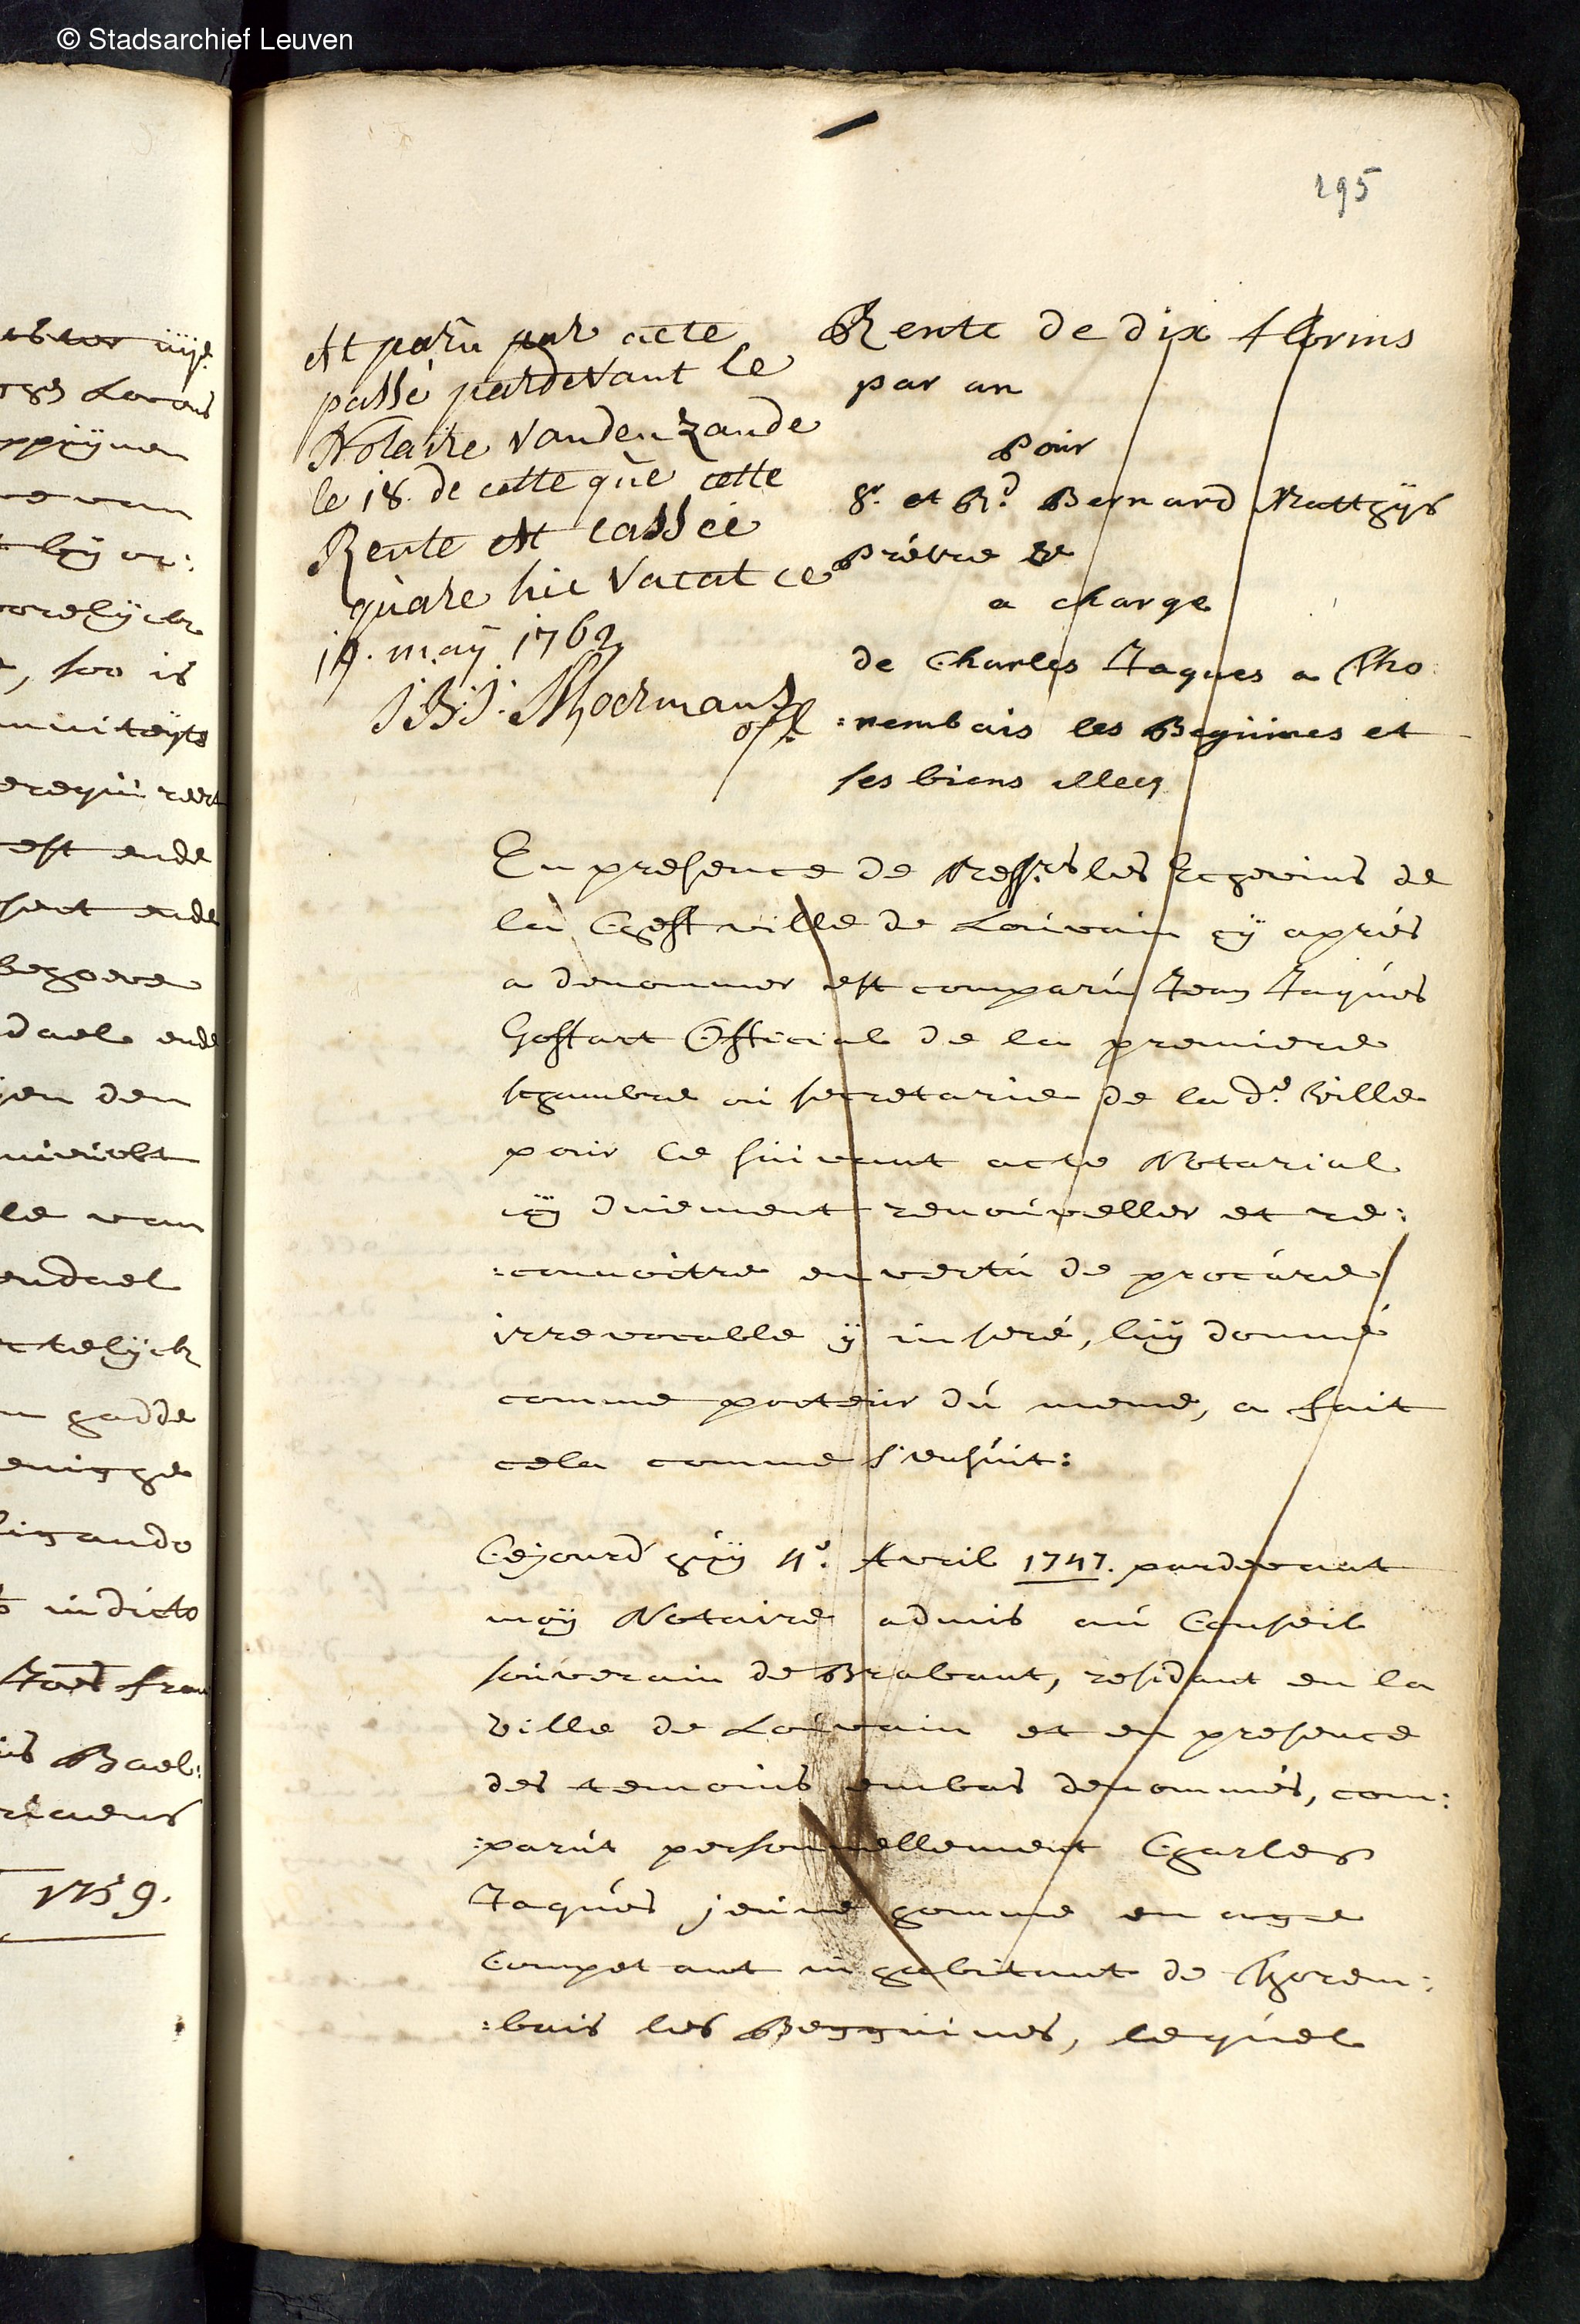 © Stadsarchief Leuven
195
Est parù par acte
passé pardevant le
Notaire Vanden Zande
le 18. de cette que cette
Rente est cassée
quare hic vacat ce
19. may 1762
off.l
Rente de dix florins
par an
pour
Sr. et Rd. Bernard Matthijs
Prêtre &c
a charge
de Charles Jaques a Tho
:nembais les Beguines et
ses biens illecq
En presence de Messrs les Echevins de
la Chef ville de Louvain cÿ aprés
a denommer est comparù Jean Jaques
Goffart Official de la premiere
schambre où secretarie de la de. Ville
pour le suivant acte Notarial
icÿ duement renouveller et re:
:connoitre en vertù de procùre
irrevocable ÿ inseré, luÿ donné
comme porteur dù meme, a fait
cela comme s'ensuit:
Cejourd'huÿ 4e. Avril 1747. pardevant
moÿ Notaire admis aù Conseil
souverain de Brabant, residant en la
ville de Louvain et en presence
des temoins embas denommés, com:
:parùt personnellement Charles
Jaques jeune homme en age
Competant inhabitant de Thorem:
:bais les Begguines, lequel
ende
dael ende
le van
endael
gadde
in dicto
Bael:
1759.